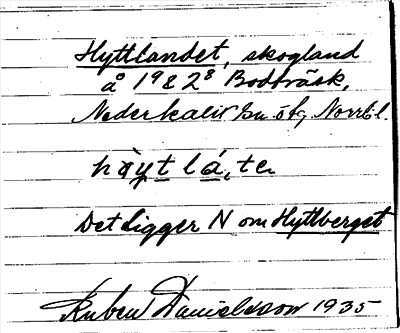 Hyttlandet, skogland
å 1982⁸ Bodträsk,
Nederkalix sn. ö bg. Norrb l.
hy̱tlá,te
Det ligger N om Hyttberget
Ruben Danielsson 1935